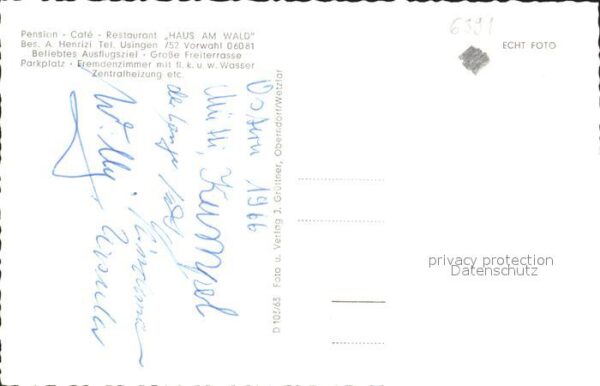 Pension - Café - Restaurant „HAUS AM WALD"
Bes. A. Henrizi Tel. Usingen 752 Vorwahl 06081
Beliebtes Ausflugsziel - Große Freiterrasse
Parkplatz - Fremdenzimmer mit fl. k. u. w. Wasser
Zentralheizung etc.
6391
ECHT FOTO
Ostern 1966
Willy
Ursula
D 103/65 Foto u. Verlag J. Grüttner, Oberndorf/Wetzlar
privacy protection
Datenschutz